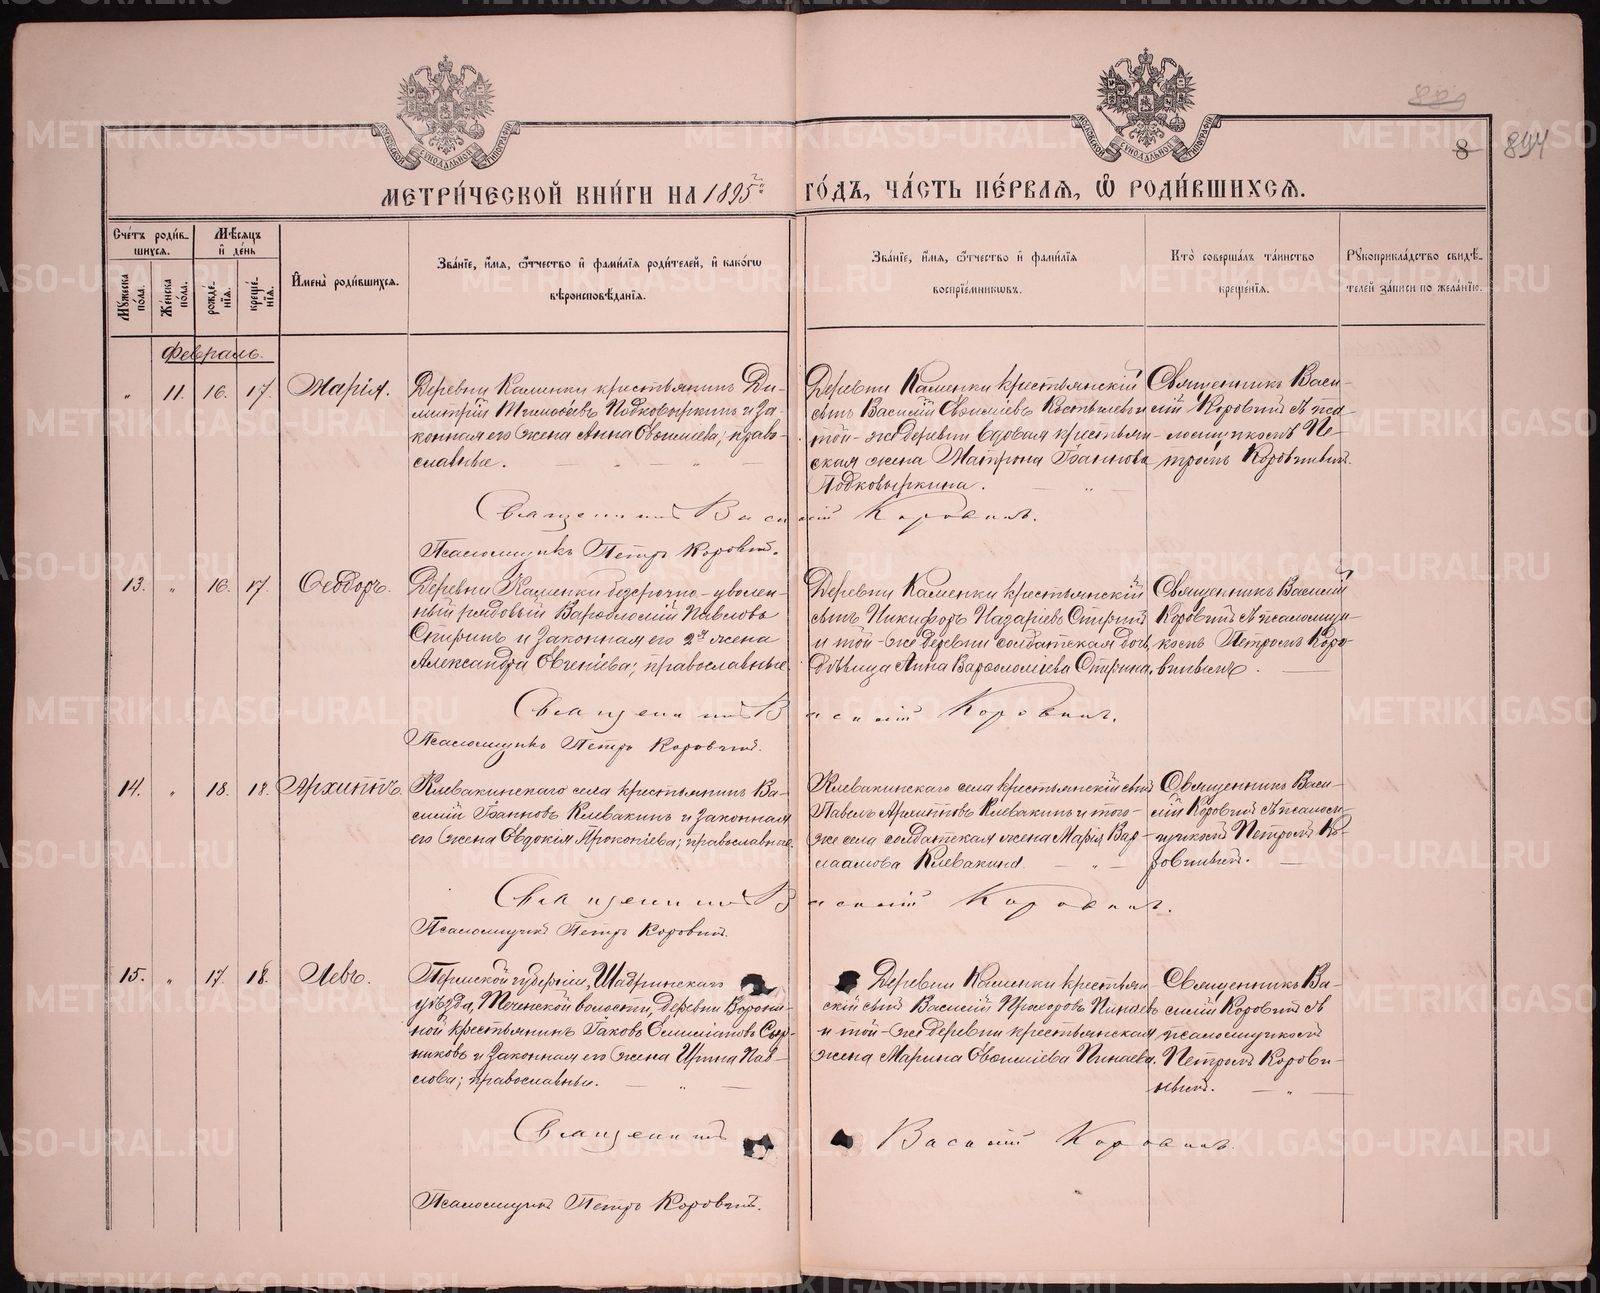 894
8
МЕТРИ́ЧЕСКОЙ КНИ́ГИ НА 1895й ГО́ДЪ, ЧА́СТЬ ПЕ́РВАѦ, Ѽ РОДИ́ВШИХСѦ.
Сче́тъ роди́в-
шихсѧ.
Мѣ́сѧцъ
и҆ де́нь
Мꙋ́жеска
по́ла.
Же́нска
по́ла.
рожде́-
нїѧ.
креще́-
нїѧ.
И҆мена̀ роди́вшихсѧ.
Зва́нїе, и҆́мѧ, ѻ҆́тчество и҆ фами́лїѧ роди́телей, и҆ како́гѡ
вѣроисповѣ́данїѧ.
Зва́нїе, и҆́мѧ, ѻ҆́тчество и҆ фами́лїѧ
воспрїе́мникѡвъ.
Кто̀ соверша́лъ та́инство
креще́нїѧ.
Рꙋкоприкла́дство свидѣ́-
телей за́писи по жела́нїю.
Февраль.
" 11. 16. 17. Марія.
Деревни Каменки крестьянинъ Ди-
митрій Тимоѳеевъ Подковыркинъ и за-
конная его жена Анна Евѳимiева; право-
славные.
Деревни Каменки крестьянскій
сынъ Василій Евѳиміевъ
той-же деревни вдовая крестьян-
ская жена Матрона Іоаннова
Подковыркина.
Священникъ Васи-
лій Коровинъ съ пса-
ломщикомъ Пе-
тромъ Коровинымъ.
Священникъ Василій Коровинъ.
Псаломщикъ Петръ Коровинъ.
13. " 16. 17. Ѳеодоръ.
Деревни Каменки безсрочно-уволен-
ный рядовый Варѳоломій Павловъ
Спиринъ и законная его 2я жена
Александра Евгеніева; православные.
Деревни Каменки крестьянскій
сынъ Никифоръ Назаріевъ Спиринъ
и той-же деревни солдатская дочь
дѣвица Анна Варѳоломіева Спирина.
Священникъ Василій
Коровинъ съ псаломщи-
комъ Петромъ Коро-
винымъ.
Священникъ Василій Коровинъ.
Псаломщикъ Петръ Коровинъ.
14. " 18. 18. Архиппъ.
Клевакинскаго села крестьянинъ Ва-
силій Іоанновъ Клевакинъ и законная
его жена Евдокія Прокопіева; православные.
Клевакинскаго села крестьянскій сынъ
Павелъ Архипповъ Клевакинъ и того-
же села солдатская жена Марія Вар-
лаамова Клевакина.
Священникъ Васи-
лій Коровинъ съ псалом-
щикомъ Петромъ Ко-
ровинымъ.
Священникъ Василій Коровинъ.
Псаломщикъ Петръ Коровинъ.
15. " 17. 18. Левъ.
Пермской губерніи, Шадринскаго
уѣзда, Теченской волости, деревни Ворони-
ной крестьянинъ Іаковъ Емиліановъ
и законная его жена Ирина Пав-
лова; православные.
Деревни Каменки крестьян-
скій сынъ Василій Прохоровъ Пинаевъ
и той-же деревни крестьянская
жена Марина Евѳиміева Пинаева.
Священникъ Ва-
силій Коровинъ съ
псаломщикомъ
Петромъ Корови-
нымъ.
Священникъ Василій Коровинъ.
Псаломщикъ Петръ Коровинъ.
METRIKI.GASO-URAL.RU